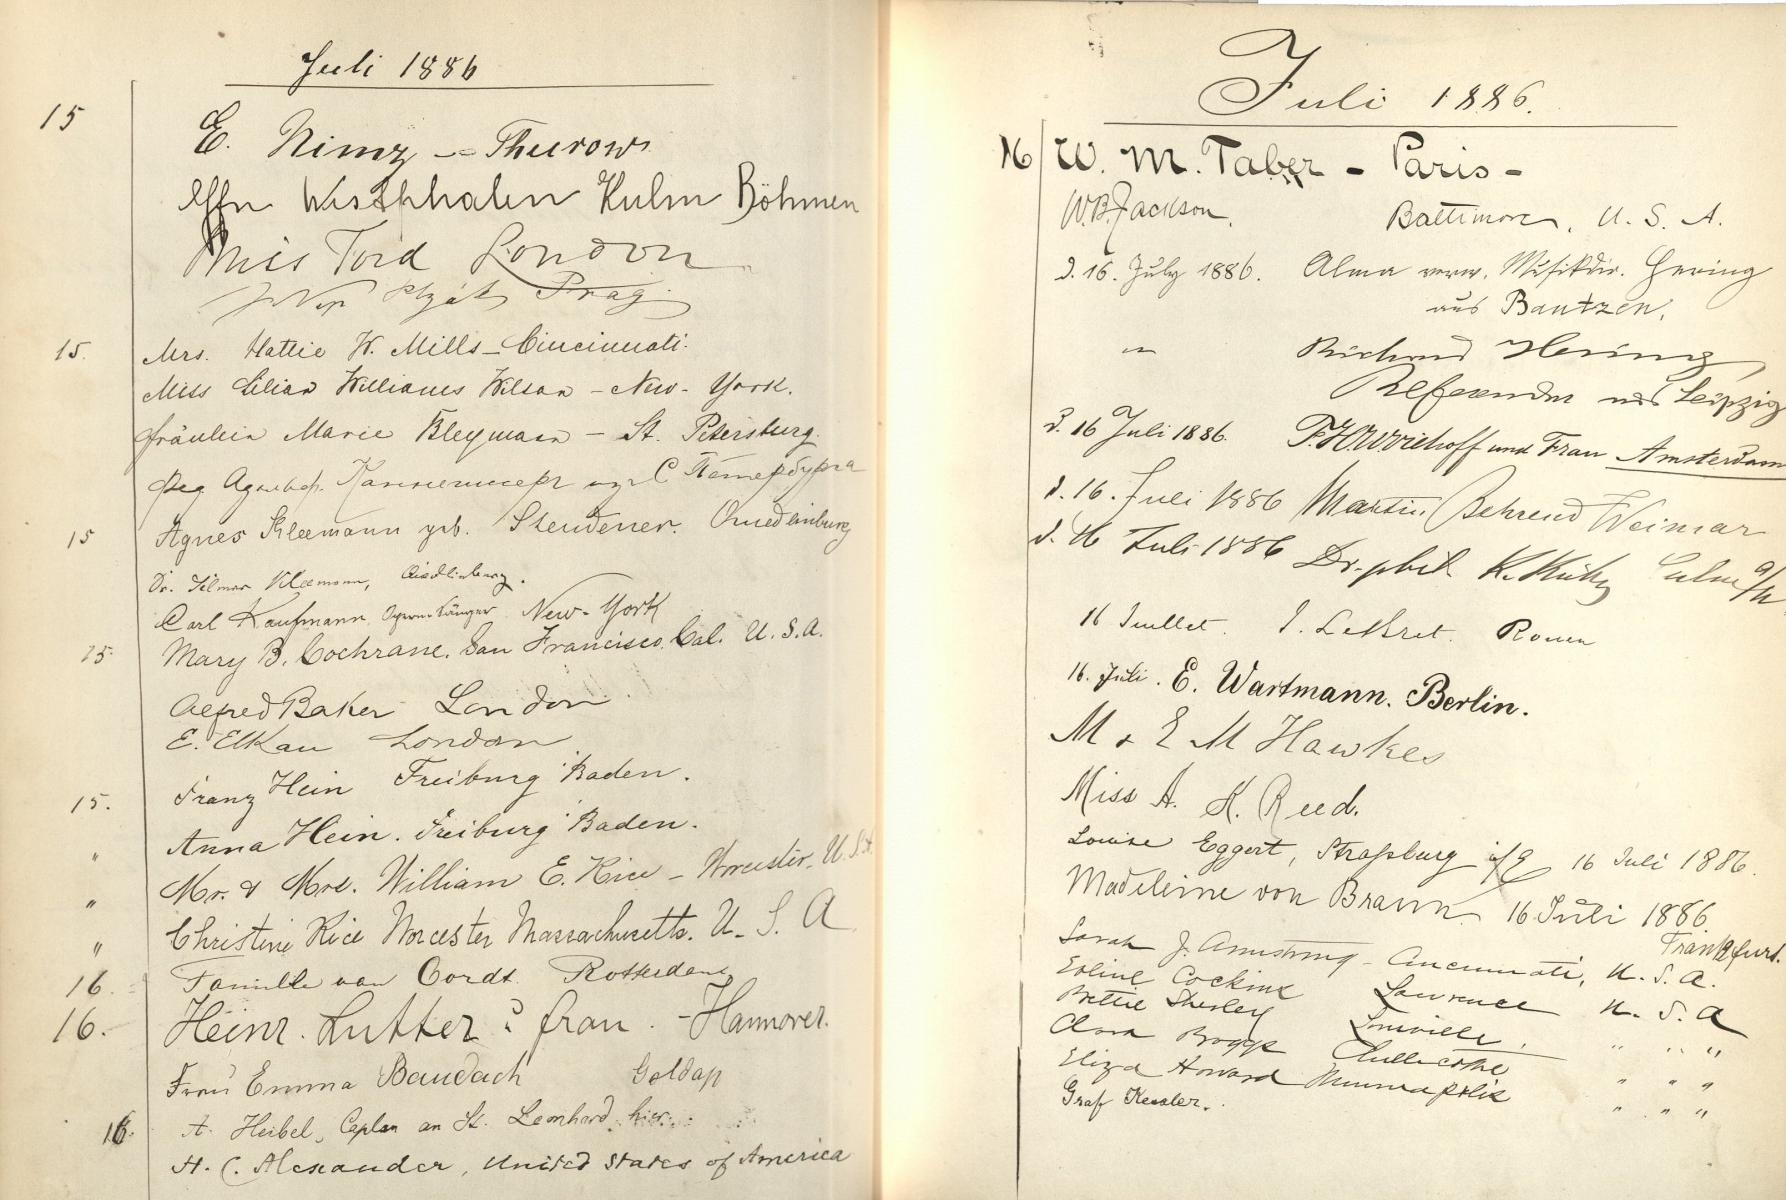 Juli 1886
15
E. Nimz – Thurow
Westphalen Kulm Böhmen
Miss Ford London
Prag
15. Mrs. Hattie W. Mills – Cincinnati.
Miss Lilian Williams Wilson – New-York.
Fräulein Marie Bleymann – St. Petersburg.
С Петербурга
15 Agnes Kleemann geb. Steudener. Quedlinburg
Dr. Kleemann, Quedlinburg.
Carl Kaufmann, Opernsänger New-York
15 Mary B. Cochrane. San Francisco, Cal. U.S.A.
Alfred Baker London
E. Elkan London
15. Franz Hein Freiburg Baden.
" Anna Hein. Freiburg Baden.
" Mr. & Mrs. William E. Rice – Worcester, U.S.A.
" Christine Rice Worcester Massachusetts. U. S. A
16. Familie van Oordt Rotterdam
16. Heinr. Lutter & frau. – Hannover.
Frau Emma Baudach Goldap
16. A. Heibel, Caplan an St. Leonhard, hier.
H. C. Alexander, United States of America
Juli 1886.
16 W. M. Taber – Paris –
W.B. Jackson. Baltimore, U. S. A.
d. 16. July 1886. Alma verw. Musikdir. Hering
aus Bautzen.
" Richard Hering
Referendar aus Leipzig
d. 16 Juli 1886. und Frau Amsterdam
d. 16. Juli 1886 Martin Behrend Weimar
d. 16 Juli 1886 Dr. phil. K.
16 Juillet. LeBret. Rouen
16. Juli. E. Wartmann. Berlin.
M & E M Hawkes
Miss A. K. Reed.
Louise Eggert, Straßburg i/E 16 Juli 1886.
Madeleine von Braun 16 Juli 1886
Frankfurt.
Sarah J. Armstrong – Cincinnati, U. S. A.
Evline Cockins Lawrence U. S. A
Bettie Sherley Louisville. " " "
Clara Boggs Chillicothe " " "
Eliza Howard Minneapolis " " "
Graf Kessler.